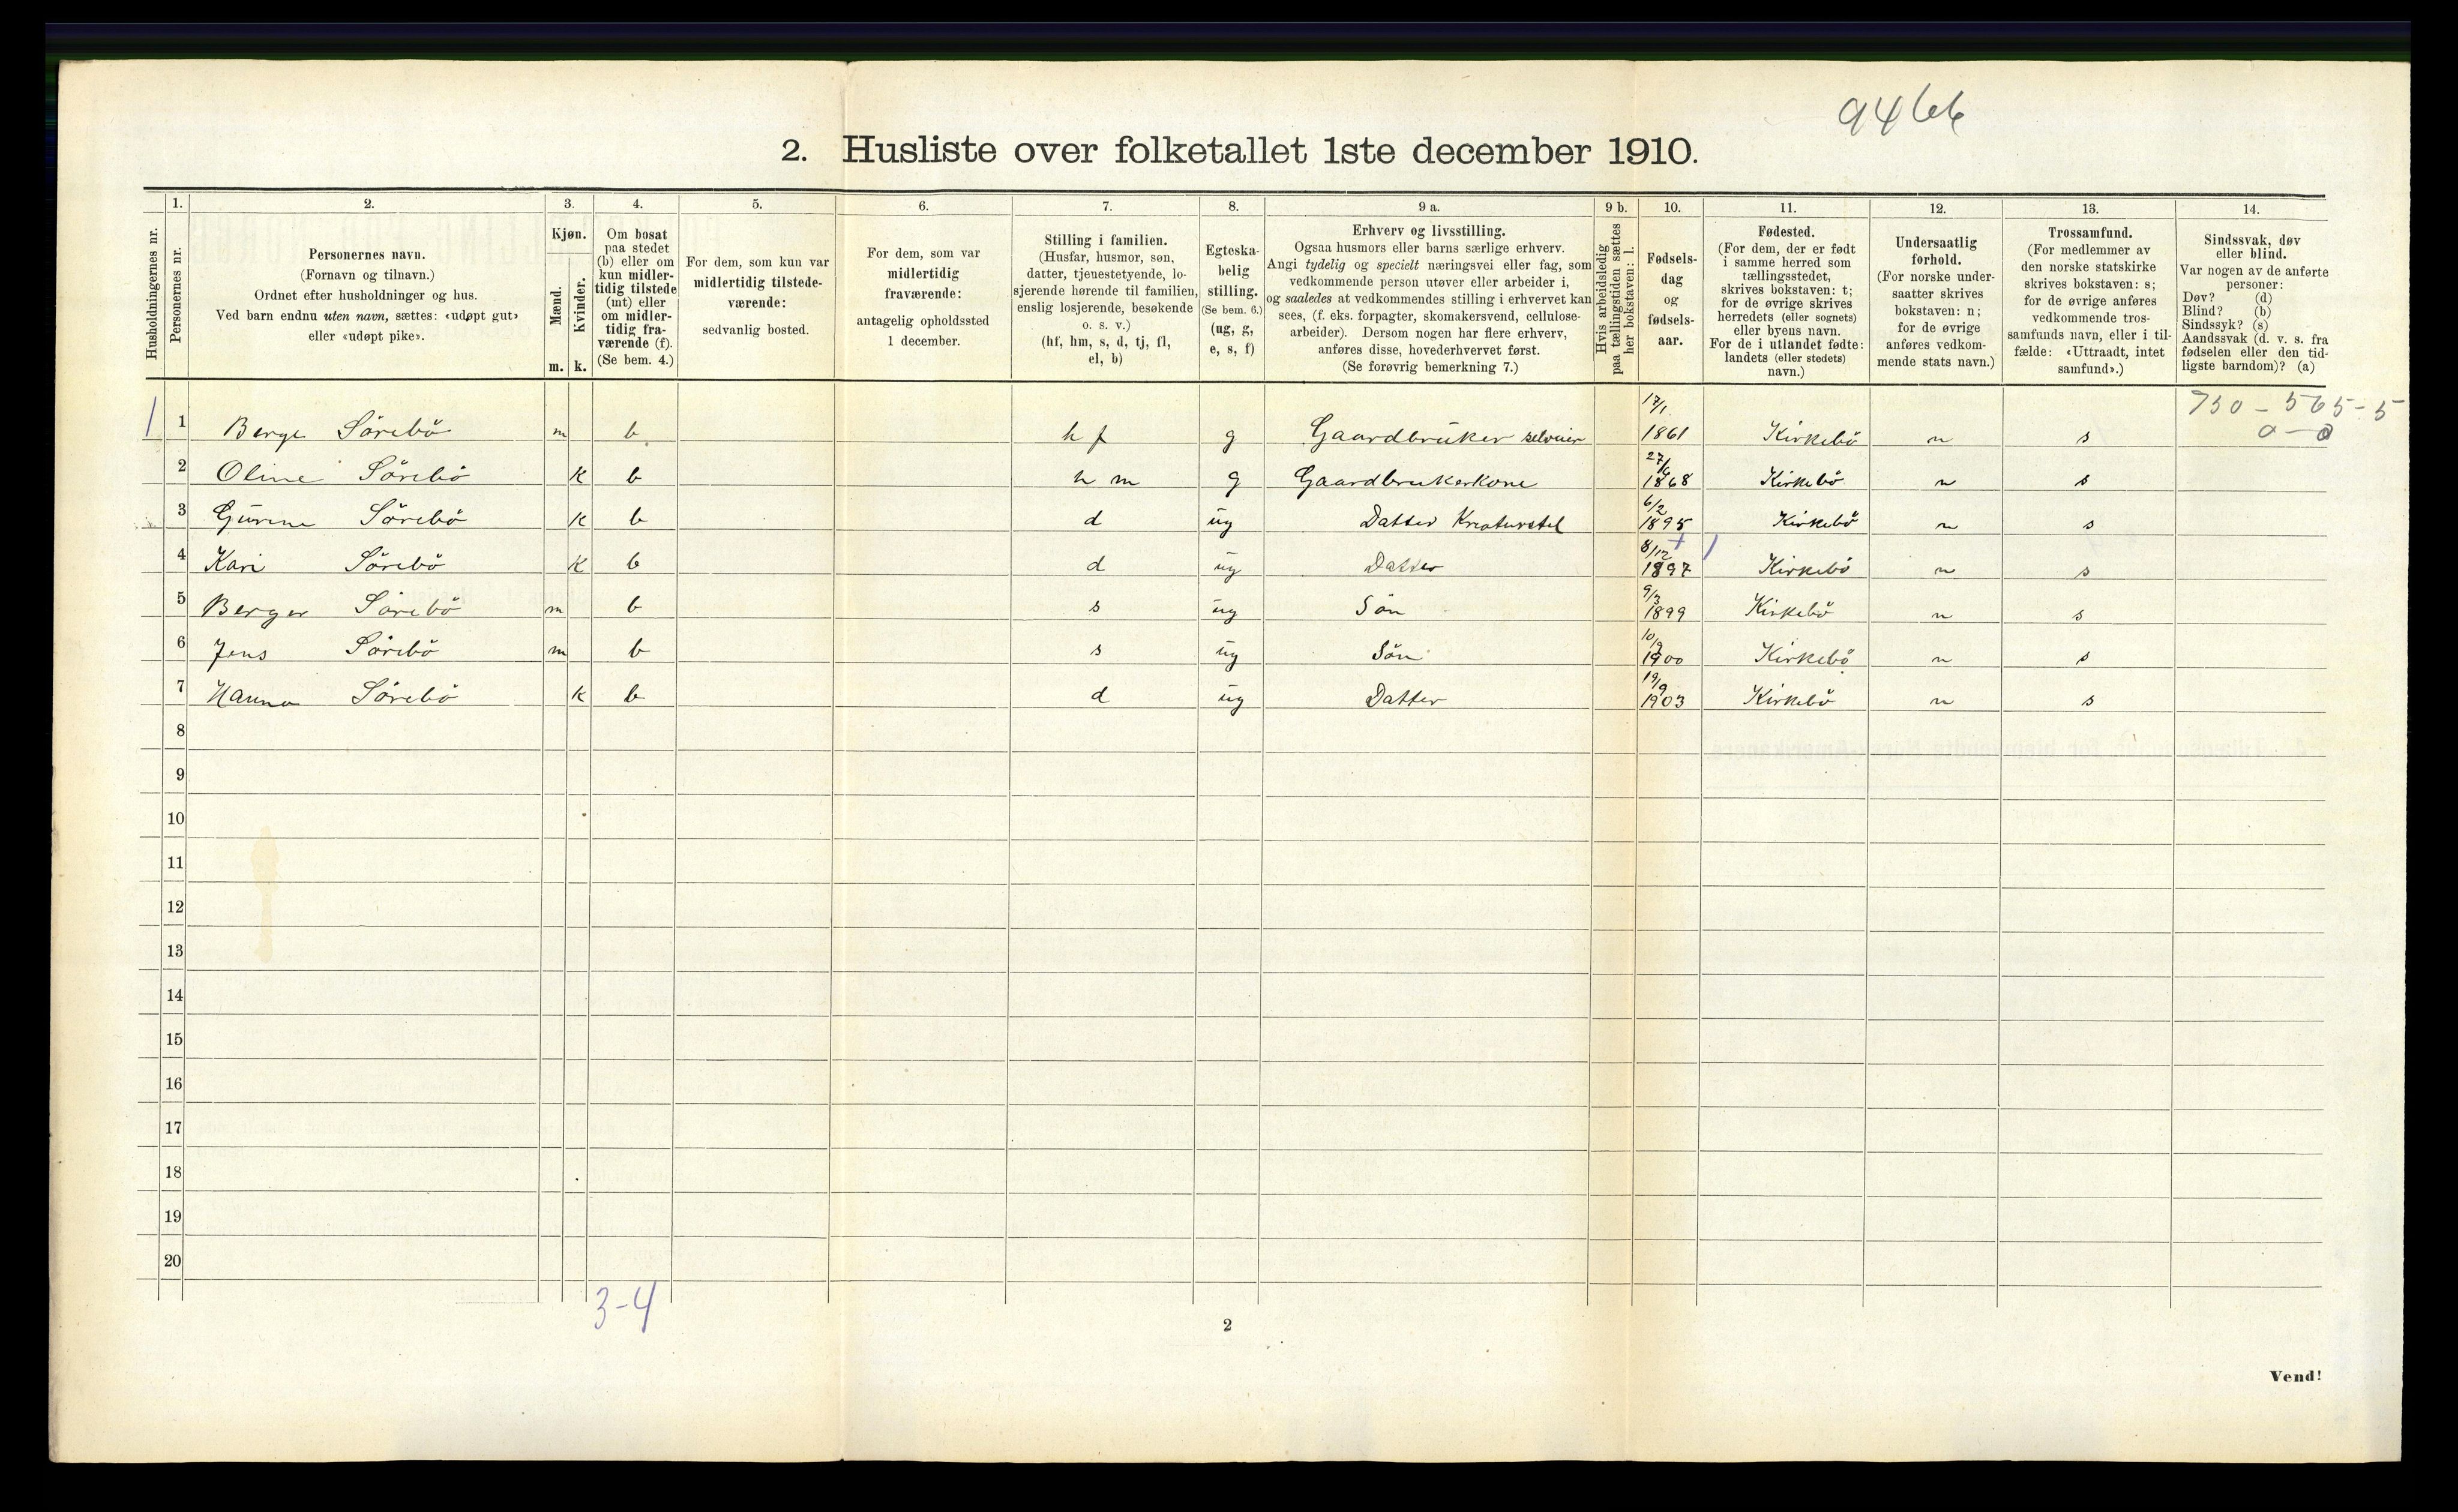 9466
2. Husliste over folketallet 1ste december 1910.
1. 2. 3. 4. 5. 6. 7. 8. 9 a. 9 b. 10. 11. 12. 13. 14.
Husholdningernes nr.
Personernes nr.
Personernes navn.
(Fornavn og tilnavn.)
Ordnet efter husholdninger og hus.
Ved barn endnu uten navn, sættes: «udøpt gut»
eller «udøpt pike».
Kjøn.
Mænd.
Kvinder.
m. k.
Om bosat
paa stedet
(b) eller om
kun midler-
tidig tilstede
(mt) eller
om midler-
tidig fra-
værende (f).
(Se bem. 4.)
For dem, som kun var
midlertidig tilstede-
værende:
sedvanlig bosted.
For dem, som var
midlertidig
fraværende:
antagelig opholdssted
1 december.
Stilling i familien.
(Husfar, husmor, søn,
datter, tjenestetyende, lo-
sjerende hørende til familien,
enslig losjerende, besøkende
o. s. v.)
(hf, hm, s, d, tj, fl,
el, b)
Egteska-
belig
stilling.
(Se bem. 6.)
(ug, g,
e, s, f)
Erhverv og livsstilling.
Ogsaa husmors eller barns særlige erhverv.
Angi tydelig og specielt næringsvei eller fag, som
vedkommende person utøver eller arbeider i,
og saaledes at vedkommendes stilling i erhvervet kan
sees, (f. eks. forpagter, skomakersvend, cellulose-
arbeider). Dersom nogen har flere erhverv,
anføres disse, hovederhvervet først.
(Se forøvrig bemerkning 7.)
Hvis arbeidsledig
paa tællingstiden sættes
her bokstaven: l.
Fødsels-
dag
og
fødsels-
aar.
Fødested.
(For dem, der er født
i samme herred som
tællingsstedet,
skrives bokstaven: t;
for de øvrige skrives
herredets (eller sognets)
eller byens navn.
For de i utlandet fødte:
landets (eller stedets)
navn.)
Undersaatlig
forhold.
(For norske under-
saatter skrives
bokstaven: n;
for de øvrige
anføres vedkom-
mende stats navn.)
Trossamfund.
(For medlemmer av
den norske statskirke
skrives bokstaven: s;
for de øvrige anføres
vedkommende tros-
samfunds navn, eller i til-
fælde: «Uttraadt, intet
samfund».)
Sindssvak, døv
eller blind.
Var nogen av de anførte
personer:
Døv? (d)
Blind? (b)
Sindssyk? (s)
Aandssvak (d. v. s. fra
fødselen eller den tid-
ligste barndom)? (a)
730 - 565 - 5
0 - 0
1 1 Berge Sörebö m b h f g Gaardbrüker selveier 17/1 1861 Kirkebö n s
2 Oline Sörebö k b h m g Gaardbrukerkone 27/6 1868 Kirkebö n s
3 Gürine Sörebö k b d üg Datter Kreaturstel 6/2 1895 Kirkebö n s
4 Kari Sörebö k b d üg Datter 8/12 1897 Kirkebö n s
5 Berger Sörebö m b s üg Sön 9/3 1899 Kirkebö n s
6 Jens Sörebö m b s üg Sön 1900 Kirkebö n s
7 Hanna Sörebö k b d üg Datter 19/9 1903 Kirkebö n s
8
9
10
11
12
13
14
15
16
17
18
19
20
3-4
2
Vend!